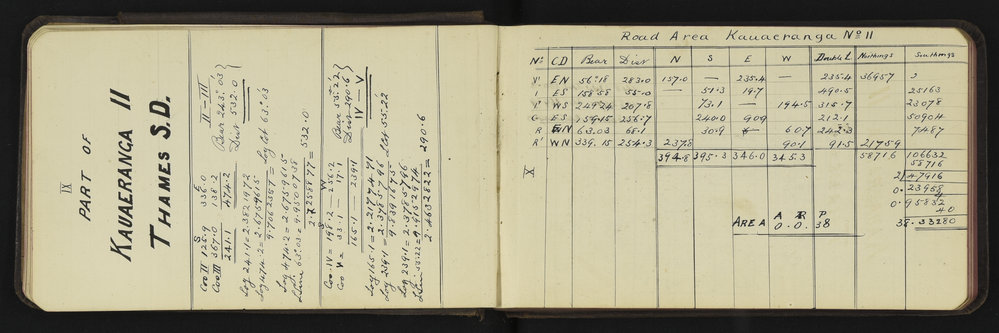 IX
PART OF
KAUAERANGA II
THAMES S.D.
S E
Coo II 125.9 336.0
Coo III 367.0 138.2
241.1 474.2
II – III
Bear 243°.03
Dist 532.0
Log 241.1 = 2.3821972
Log 474.2 = 2.6759615
9.7062357 = Log Cot 63°.03
Log 474.2 = 2.6759615
LSin 63°.03 = 9.9500738
2.7258877 = 532.0
S W
Coo. IV = 198.2 – 256.2
Coo V = 33.1 – 17.1
165.1 – 239.1
Bear 55°.22
Dist 290.6
IV – V
Log 165.1 = 2.2177471
Log 239.1 = 2.3785796
Log 239.1 = 2.3785796
LSin 55.22 = 9.9152974
2.4632822 = 290.6
Road Area Kauaeranga No II
No C.D Bear Dist N S E W Double L Northings Southings
V' EN 56°18 283.0 157.0 — 235.4 — 235.4 36957
I ES 158.58 55.0 — 51.3 19.7 490.5 25163
I' WS 249°24 207.8 73.1 — 194.5 315.7 23078
G ES 159.15 256.7 240.0 90.9 212.1 50904
R 63.03 68.1 — 30.9 60.7 242.3 7487
R' WN 339.15 254.3 237.8 90.1 91.5 21759
394.8 395.3 346.0 345.3 58716 106632
58716
2 47916
0.23958
4
0.95832
40
38.33280
X
AREA A R P
0. 0. 38